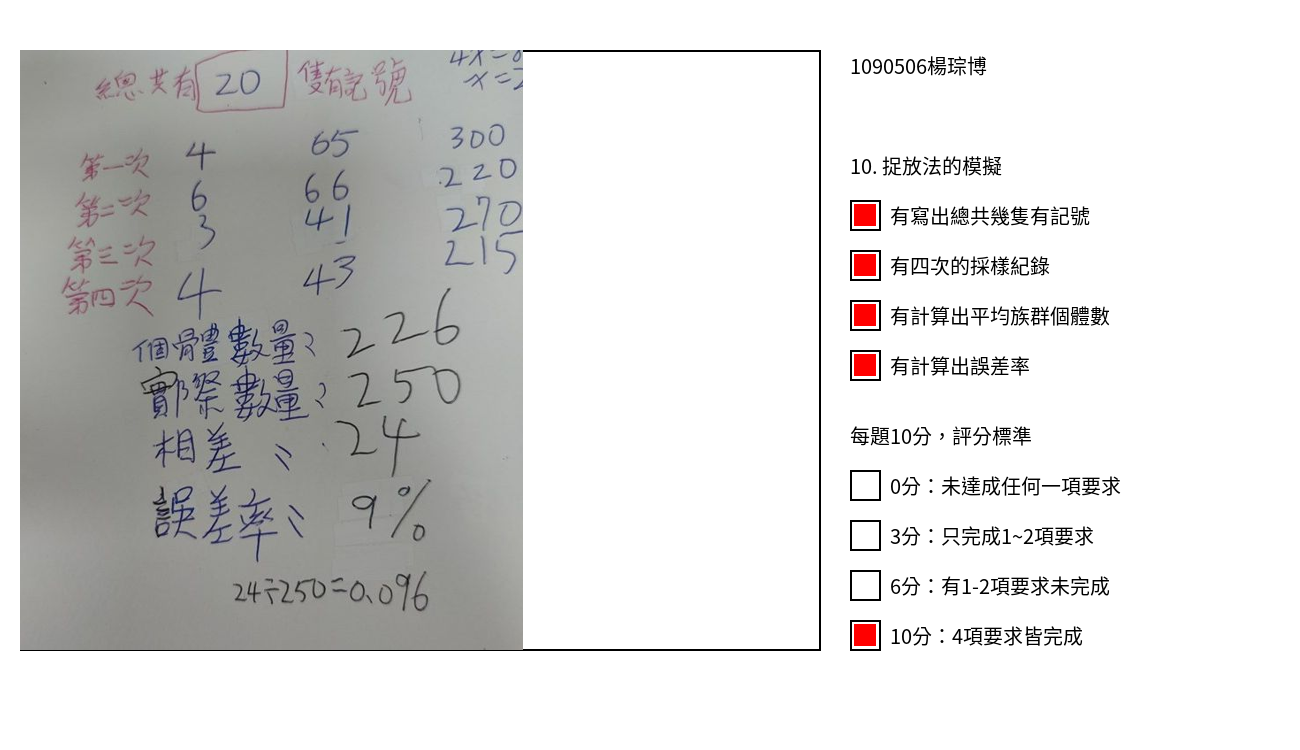 總共有 20 隻有記號
4x=
x=2
第一次 4 65 300
第二次 6 66 220
第三次 3 41 270
第四次 4 43 215
個體數量: 226
實際數量: 250
相差: 24
誤差率: 9%
24÷250=0.096
1090506楊琮博
10. 捉放法的模擬
有寫出總共幾隻有記號
有四次的採樣紀錄
有計算出平均族群個體數
有計算出誤差率
每題10分，評分標準
0分：未達成任何一項要求
3分：只完成1~2項要求
6分：有1-2項要求未完成
10分：4項要求皆完成